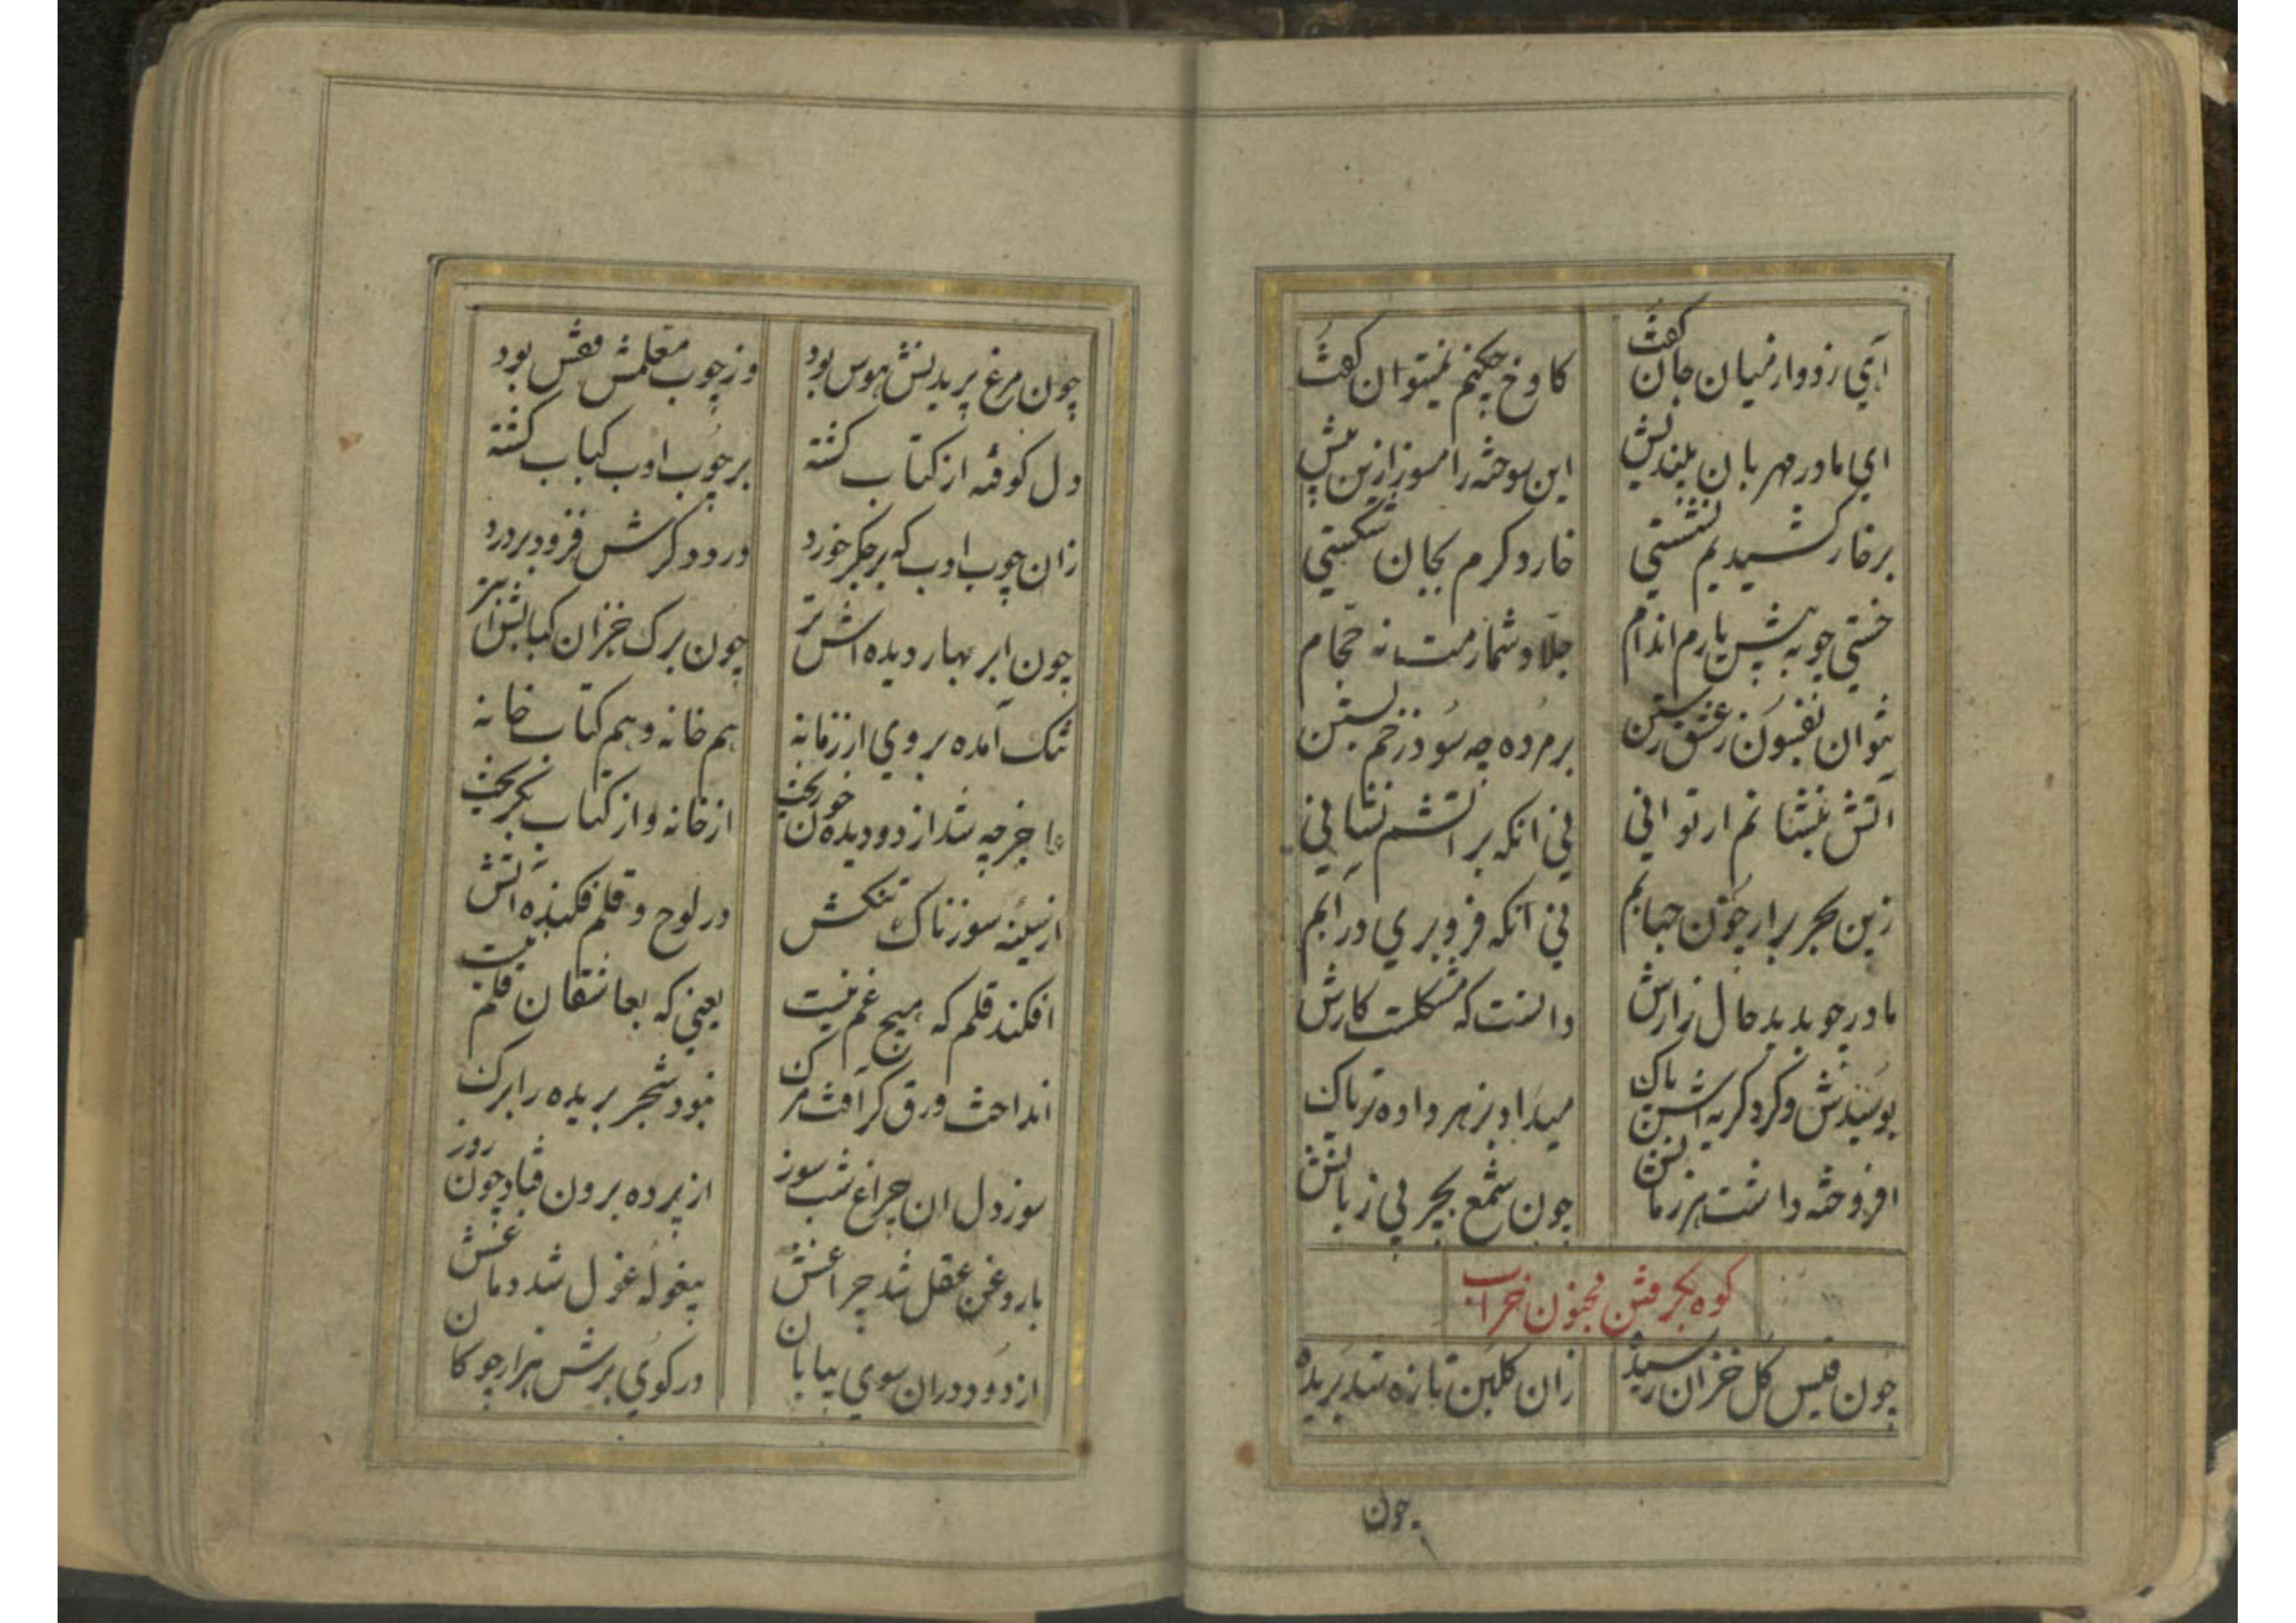 آهی زد و از میان جان گفت کاوخ چکنم نمیتوان گفت
ای مادر مهربان بیندیش این سوخته را مسوز ازین پیش
بر خار کشیدیم نشستی خار دگرم بجان شکستی
خستی چو به پیش یارم اندام جلاد شمارمت نه حجام
نتوان بفسون ز عشق رستن بر مرده چه سود زخم بستن
آتش بنشانم ار توانی نی آنکه بر آتشم نشانی
زین بحر برار چون حبابم نی آنکه فرو بری در آبم
مادر چو بدید حال زارش دانست که مشکلست کارش
بوسیدش و کرد گریه اش پاک میداد بزهر داده تریاک
افروخته داشت هر زمانش چون شمع بچرب زبانش
کوه بکر فتن مجنون خراب
چون قیس گل خزان رسیده زان گلبن تازه شد بریده
چون
چون مرغ پریدنش هوس بود وز چوب معلمش قفس بود
دل کوفته از کتاب گشته بر چوب ادب کباب گشته
زان چوب ادب که بر جگر خورد درد دگرش فزود بر درد
چون ابر بهار دیده اش تر چون برگ خزان کتابش ابتر
تنگ آمده بر وی از زمانه هم خانه و هم کتاب خانه
خون ریخت از خانه و از کتاب بگریخت
از سینه سوزناک تنکش در لوح و قلم فکنده آتش
افکند قلم که هیچ غم نیست یعنی که بعاشقان قلم نیست
انداخت ورق کر آفت مرگ نبود شجر بریده را برگ
سوز دل آن چراغ شب سوز از پرده برون فتاد چون روز
با روغن عقل شد چراغش بیغوله غول شد دماغش
از دود دران سوی بیابان در کوی برش هزار چو کان